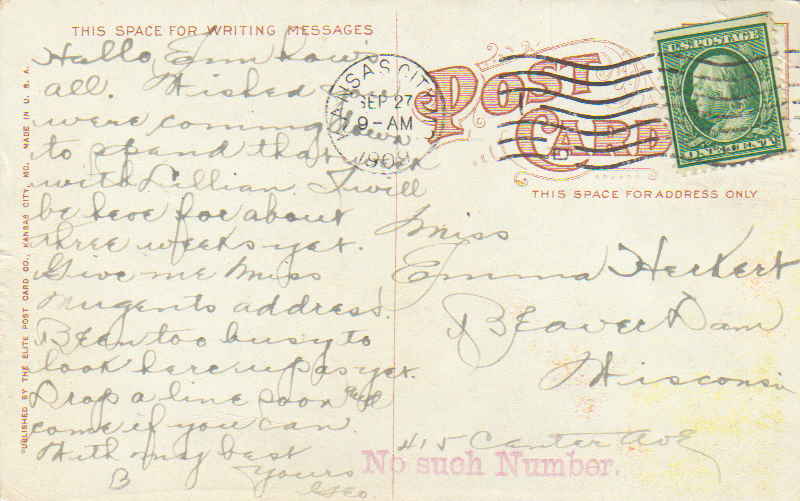 THIS SPACE FOR WRITING MESSAGES
Hallo Em how's
all. Wished you
were coming down
to spend that week
with Lillian. I will
be here for about
three weeks yet.
Give me Miss
Nugents address.
Been too busy to
look here up as yet.
Drop a line soon and
come if you can.
With my best
B Yours
Geo.
PUBLISHED BY THE ELITE POST CARD CO., KANSAS CITY, MO. MADE IN U. S. A.
KANSAS CITY
SEP 27
9-AM
1909
POST
CARD
U.S. POSTAGE
THIS SPACE FOR ADDRESS ONLY
Miss
Emma Herkert
Beaver Dam
Wisconsin
415 Center Ave
No such Number.